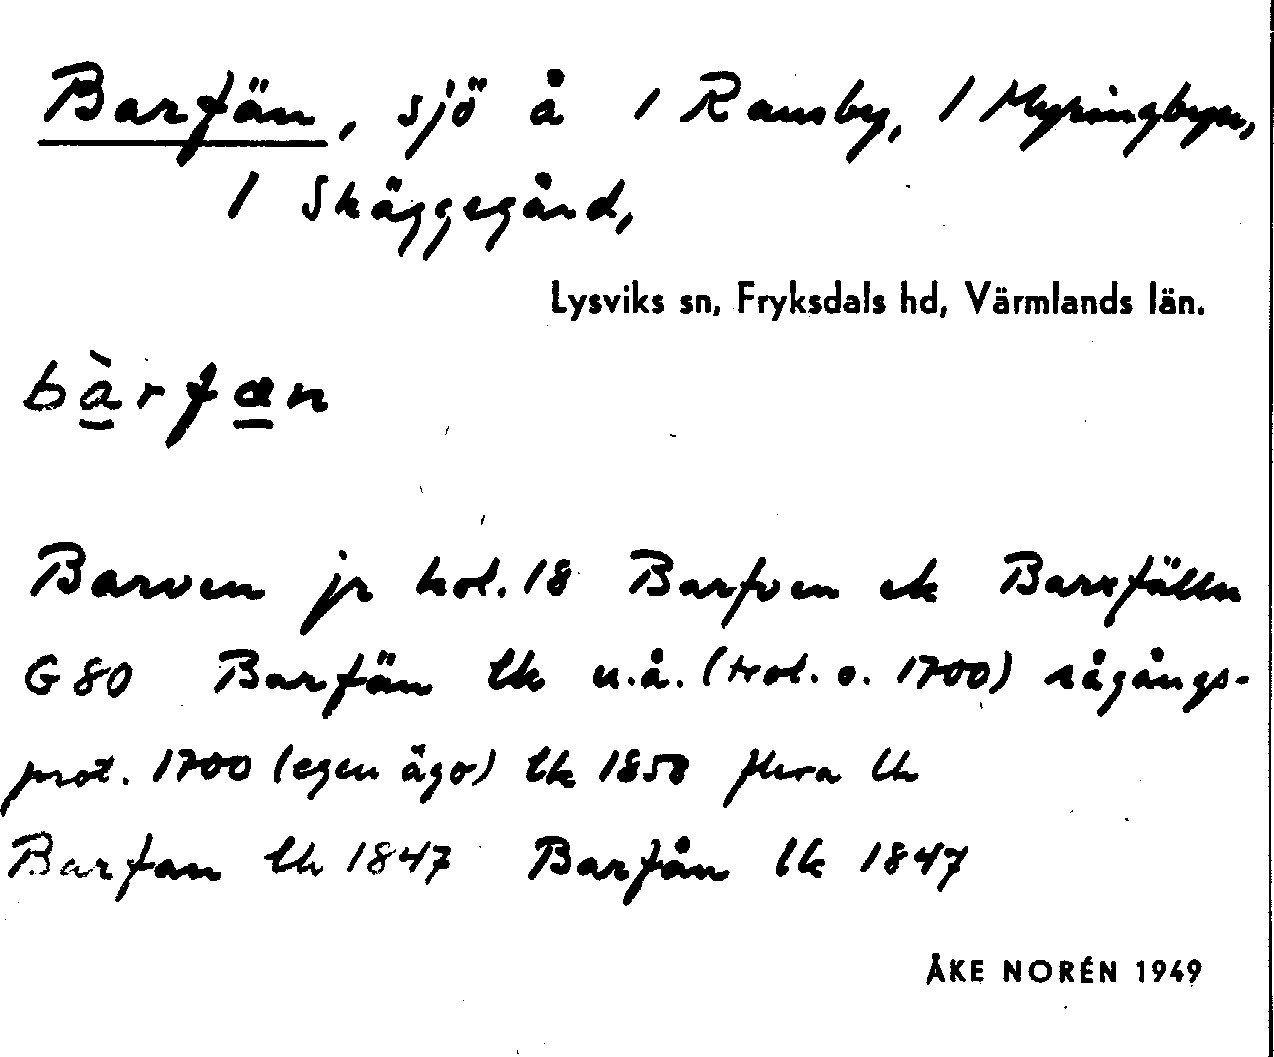 Barfän, sjö å 1 Ransby, 1 Myringbyn,
1 Skäggegård,
Lysviks sn, Fryksdals hd, Värmlands län.
bàrfan
Barven jr kol. 18 Barfven ek Barxfälln
G 80 Barfän lk u.å. (trol. o. 1700) rågångs-
prot. 1700 (egen ägo) lk 1858 flera lk
Barfan lk 1847 Barfån lk 1847
ÅKE NORÉN 1949